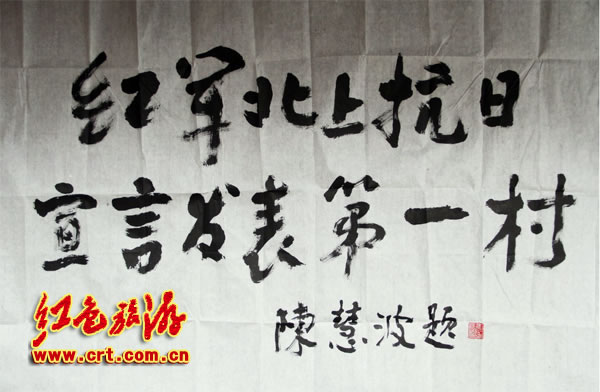 红军北上抗日
宣言发表第一村
陳慧波题
红色旅游
www.crt.com.cn